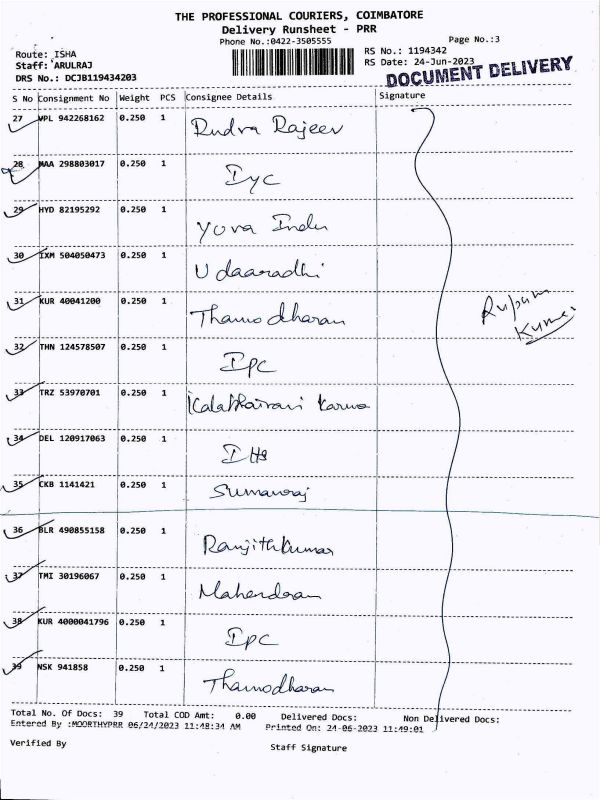 THE PROFESSIONAL COURIERS, COIMBATORE
Delivery Runsheet - PRR
Phone No.:0422-3505555 Page No.:3
Route: ISHA RS No.: 1194342
Staff: ARULRAJ RS Date: 24-Jun-2023
DRS No.: DCJB119434203
DOCUMENT DELIVERY
S No Consignment No Weight PCS Consignee Details Signature
27 VPL 942268162 0.250 1 Rudra Rajeev
28 MAA 298803017 0.250 1 Iyc
29 HYD 82195292 0.250 1 Yuva Indu
30 IXM 504050473 0.250 1 Udaaradhi
31 KUR 40041200 0.250 1 Thamodharan
Rupam
Kumar
32 THN 124578507 0.250 1 IPC
33 TRZ 53970701 0.250 1 Kalabhairavi Karma
34 DEL 120917063 0.250 1 IHS
35 CKB 1141421 0.250 1 Sumanraj
36 BLR 490855158 0.250 1 Ranjithkumar
37 TMI 30196067 0.250 1 Mahendran
38 KUR 4000041796 0.250 1 IPC
39 NSK 941858 0.250 1 Thamodharan
Total No. Of Docs: 39 Total COD Amt: 0.00 Delivered Docs: Non Delivered Docs:
Entered By :MOORTHYPRR 06/24/2023 11:48:34 AM Printed On: 24-06-2023 11:49:01
Verified By Staff Signature